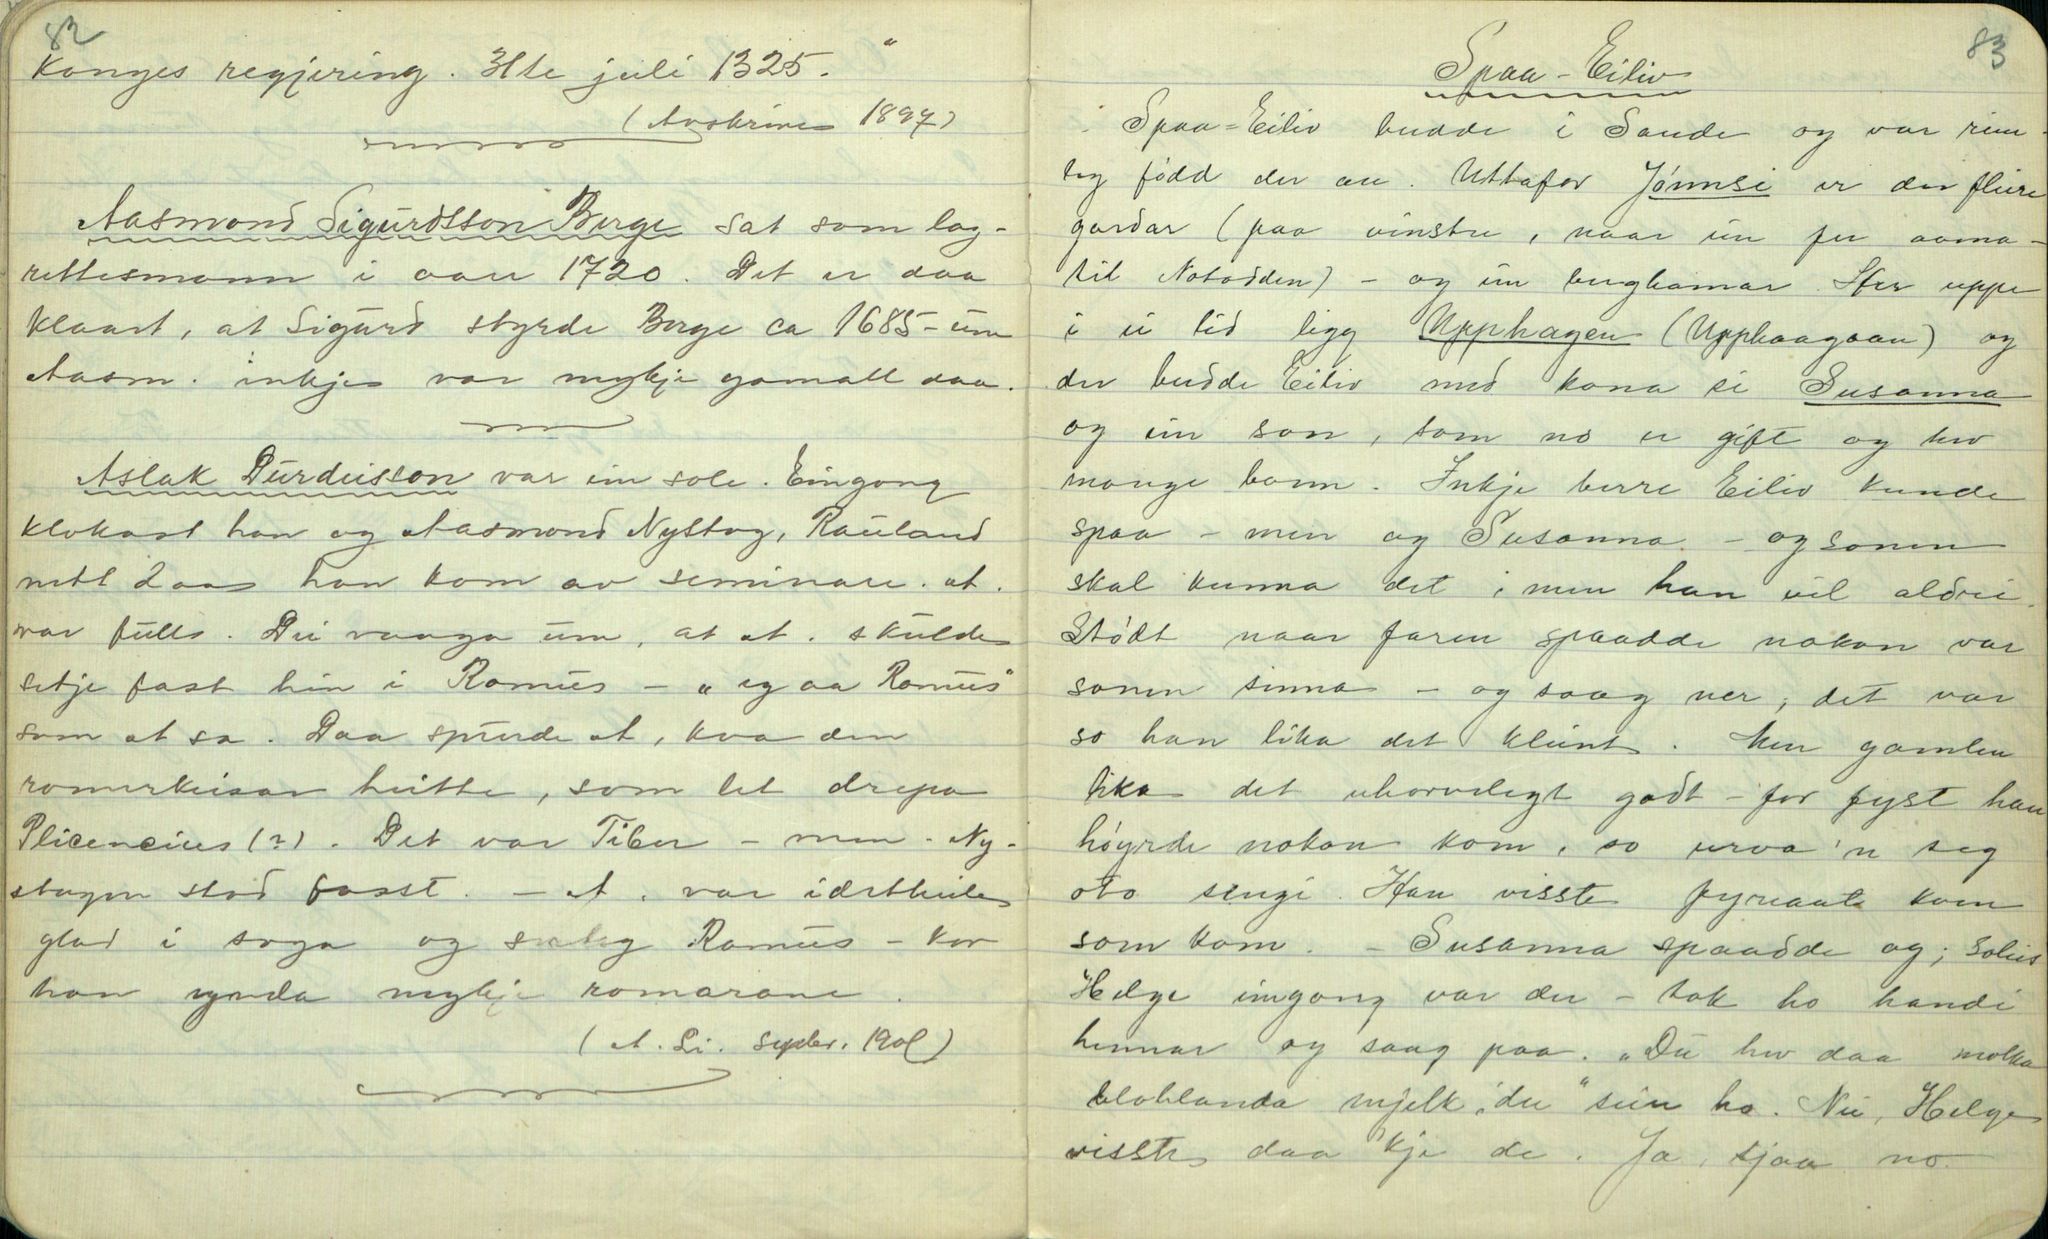 82
Konges regjering. 3die juli 1325."
(Avskrive 1897)
Aasmond Sigurdsson Berge sat som lag-
rettesmann i aare 1720. Det er daa
klaart, at Sigurd styrde Berge ca 1685 - um
Aasm. inkje var mykje gamall daa.
Aslak Durdeisson var ein sole. Eingong
klokast han og Aasmond Nystog, Rauland
nett daa han kom av seminare. A.
var fulls. Dei vaaga um, at A. skulde
setje fast hin i Romus - "eg aa Romus"
som A sa. Daa spurde A, kva den
romerkeisar heitte, som let drepa
Plicencius (?). Det var Tiber - men Ny-
stogen stod fasst. - A. var idetheile
glad i soga og Romus - kor
han ynda mykje romarane.
(A. Li. Septbr. 1901)
83
Spaa-Eiliv
Spaa-Eiliv budde i Saude og var rime-
leg fødd der au. Uttafor Jønnsi er der fleire
gardar (paa vinstre, naar ein fer aama-
til Notodden) - og ein berghamar. Her uppe
i ei lid ligg Upphagen (Upphaagaan) og
der budde Eiliv med kona si Susanna
og ein son, som no er gift og hev
mange bonn. Inkje berre Eiliv kunde
spaa - men og Susanna - og sonen
skal kunna det, men han vil aldrei.
Stødt naar faren spaadde nokon var
sonen sinna - og saag ner, det var
so han lika det kleint. Men gamlen
lika det uhorvelegt godt - for fyst han
høyrde nokon kom, so urva 'n seg
oto sengi. Han visste fyreaat kven
som kom. - Susanna spaadde og; Soleis
Helge eingong var der - tok ho handi
hennar og saag paa. "Du hev daa molka
bloblanda mjelk, du" sein ho. Nei, Helge
visste daa kje de. Ja, sjaa no